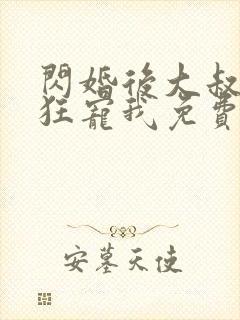 閃婚後大叔
狂寵我免費
安墓天使